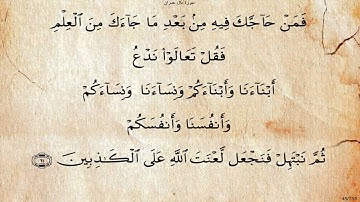 سورة آل عمران
فَمَنْ حَآجَّكَ فِيهِ مِنۢ بَعْدِ مَا جَآءَكَ مِنَ ٱلْعِلْمِ
فَقُلْ تَعَالَوْا۟ نَدْعُ
أَبْنَآءَنَا وَأَبْنَآءَكُمْ وَنِسَآءَنَا وَنِسَآءَكُمْ
وَأَنفُسَنَا وَأَنفُسَكُمْ
ثُمَّ نَبْتَهِلْ فَنَجْعَل لَّعْنَتَ ٱللَّهِ عَلَى ٱلْكَٰذِبِينَ ٦١